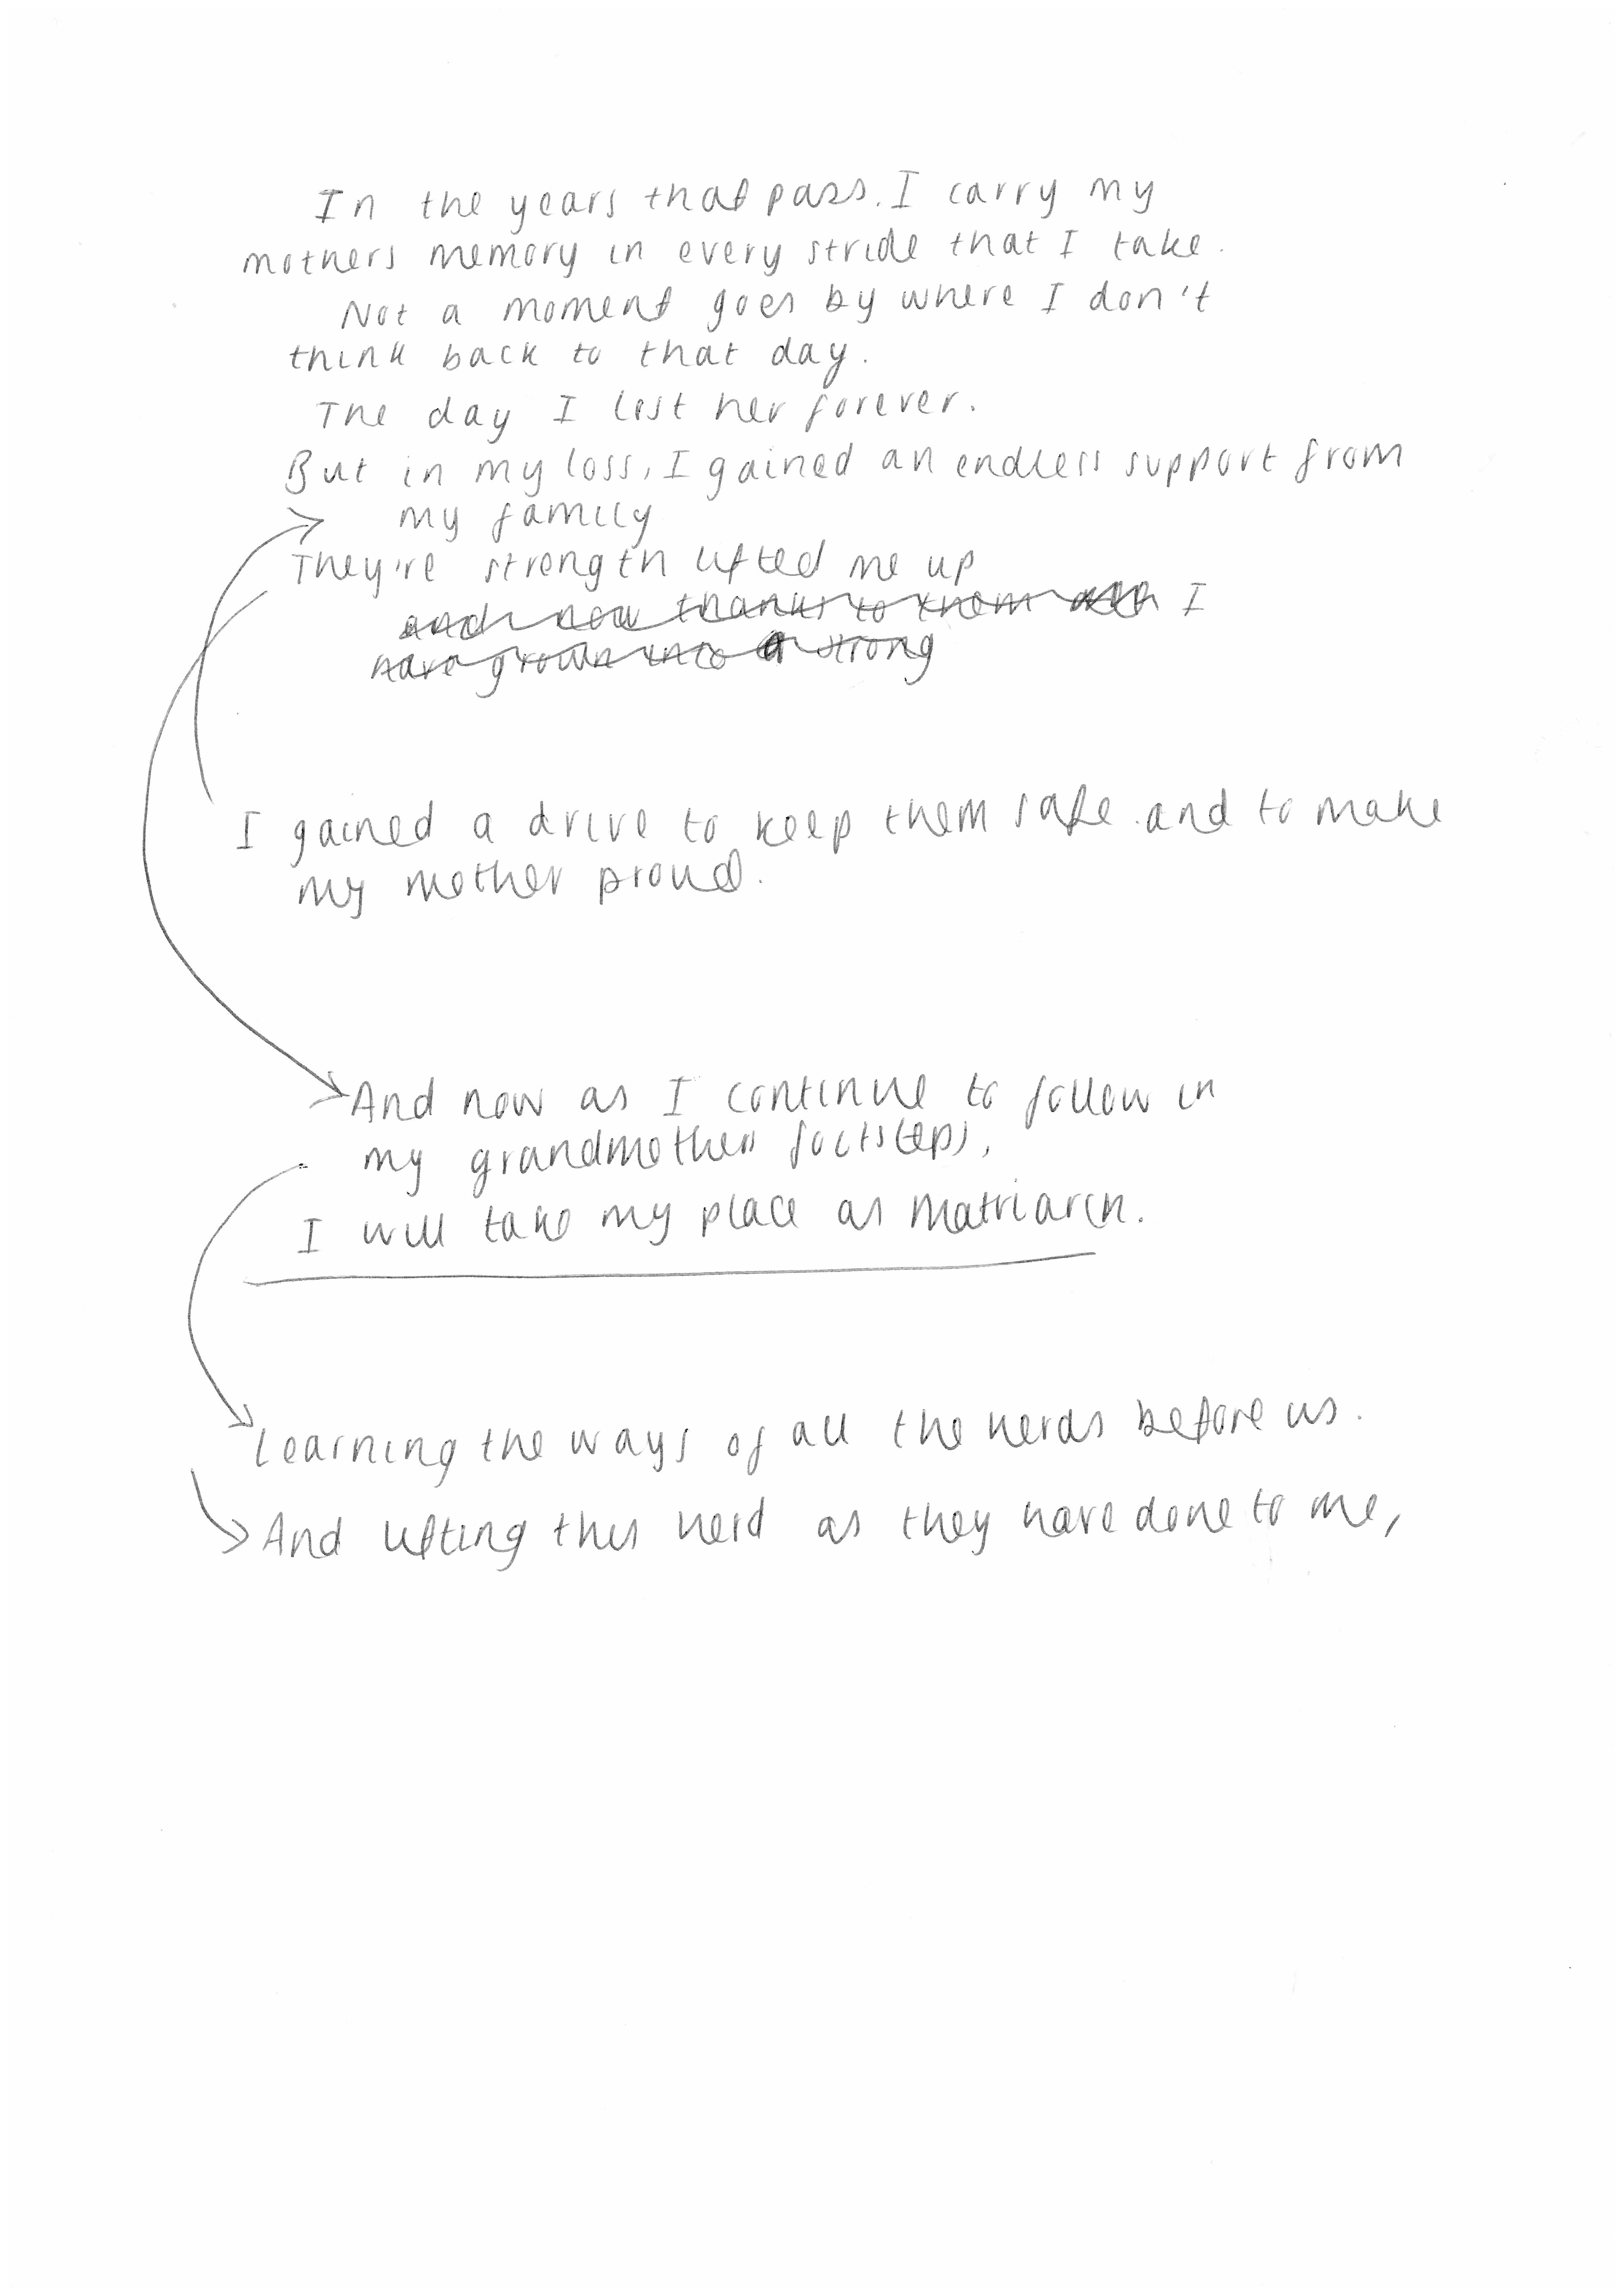 In the years that pass. I carry my
mothers memory in every stride that I take.
Not a moment goes by where I don't
think back to that day.
The day I lost her forever.
But in my loss, I gained an endless support from
my family
They're strength lifted me up
and now thanks to them I
have grown into a strong
I gained a drive to keep them safe and to make
my mother proud.
And now as I continue to follow in
my grandmothers footsteps,
I will take my place as Matriarch.
Learning the ways of all the herds before us.
And lifting this herd as they have done to me,